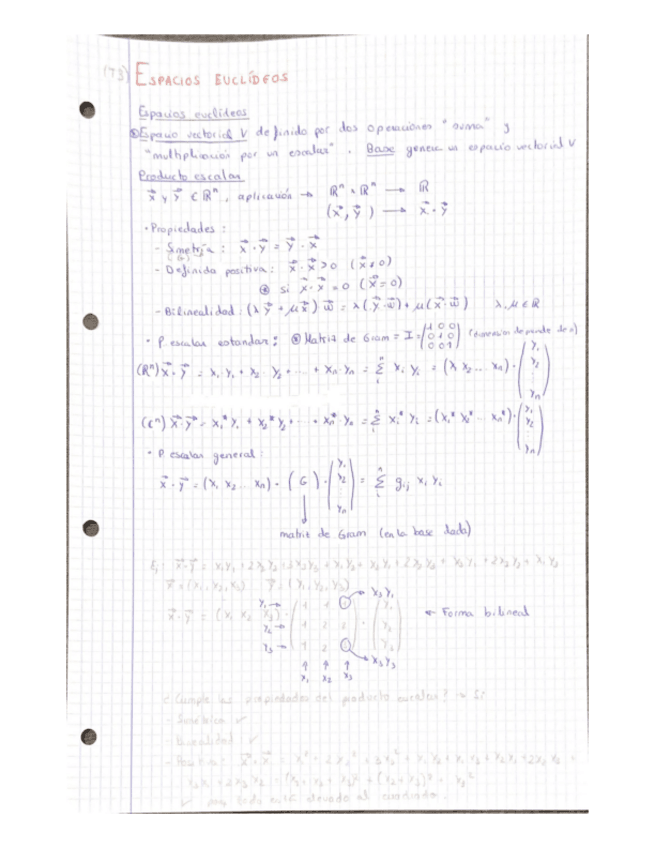 (T3) ESPACIOS EUCLÍDEOS
Espacios euclídeos
Espacio vectorial V definido por dos operaciones "suma" y
"multiplicación por un escalar". Base genera un espacio vectorial V
Producto escalar
x⃗ y y⃗ ∈ ℝⁿ, aplicación → ℝⁿ × ℝⁿ → ℝ
(x⃗, y⃗) → x⃗ · y⃗
• Propiedades:
- Simetría: x⃗ · y⃗ = y⃗ · x⃗
- Definida positiva: x⃗ · x⃗ > 0 (x⃗ ≠ 0)
si x⃗ · x⃗ = 0 (x⃗ = 0)
- Bilinealidad: (λ y⃗ + μ x⃗) w⃗ = λ(y⃗ · w⃗) + μ(x⃗ · w⃗) λ, μ ∈ ℝ
• P. escalar estandar: Matriz de Gram = I = (1 0 0 / 0 1 0 / 0 0 1) (dimension depende de n)
(ℝⁿ) x⃗ · y⃗ = x₁ y₁ + x₂ y₂ + ··· + xₙ · yₙ = Σ xᵢ yᵢ = (x₁ x₂ ... xₙ) · (y₁ y₂ ⋮ yₙ)
(ℂⁿ) x⃗ · y⃗ = x₁* y₁ + x₂* y₂ + ··· + xₙ* yₙ = Σ xᵢ* yᵢ = (x₁* x₂* ... xₙ*) · (y₁ y₂ ⋮ yₙ)
• P. escalar general:
x⃗ · y⃗ = (x₁ x₂ ... xₙ) · (G) · (y₁ y₂ ⋮ yₙ) = Σ gᵢⱼ xᵢ yⱼ
matriz de Gram (en la base dada)
x⃗ = (x₁, x₂, x₃) y⃗ = (y₁, y₂, y₃)
x⃗ · y⃗ = (x₁ x₂ x₃) · (1 1 1 / 1 2 2 / 1 2 3) · (y₁ y₂ y₃) ← Forma bilineal
x₁ x₂ x₃
¿Cumple las propiedades del producto escalar? → Sí
- Simétrica ✓
- Bilinealidad ✓
✓ todo está elevado al cuadrado.